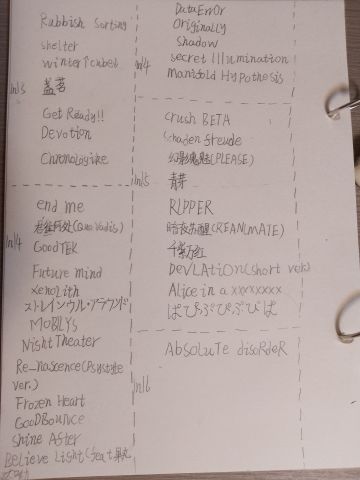 Rubbish Sorting
shelter
winter↑cube!
ln13
盖若
Get Ready!!
Devotion
Chronologike
end me
(Quo Vadis)
ln14
GoodTEK
Future mind
Xenolith
ストレイン・ウル・アラウンド
MOBILYS
NightTheater
Re-nascence(Psystyle
ver.)
Frozen Heart
GOODBOUNCE
Shine After
Believe Light(feat.
DataErr0r
Originally
shadow
ln14
secret Illumination
Manifold Hypothesis
crush BETA
schaden freude
(PLEASE)
ln15
青芽
RIPPER
(REANIMATE)
千紫万红
DEVLATION(short ver.)
Alice in a xxxxxxxx
ぱぴぷぴぷぴぱ
ln16
AbsoLuTe disoRdeR